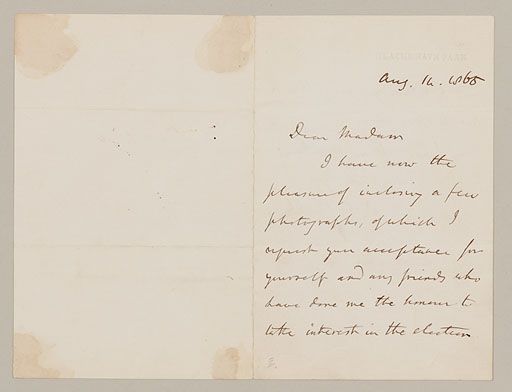 BLACKHEATH PARK
Aug. 14. 1865
Dear Madam
I have now the
pleasure of inclosing a few
photographs, of which I
request your acceptance for
yourself and any friends who
have done me the honour to
take interest in the election